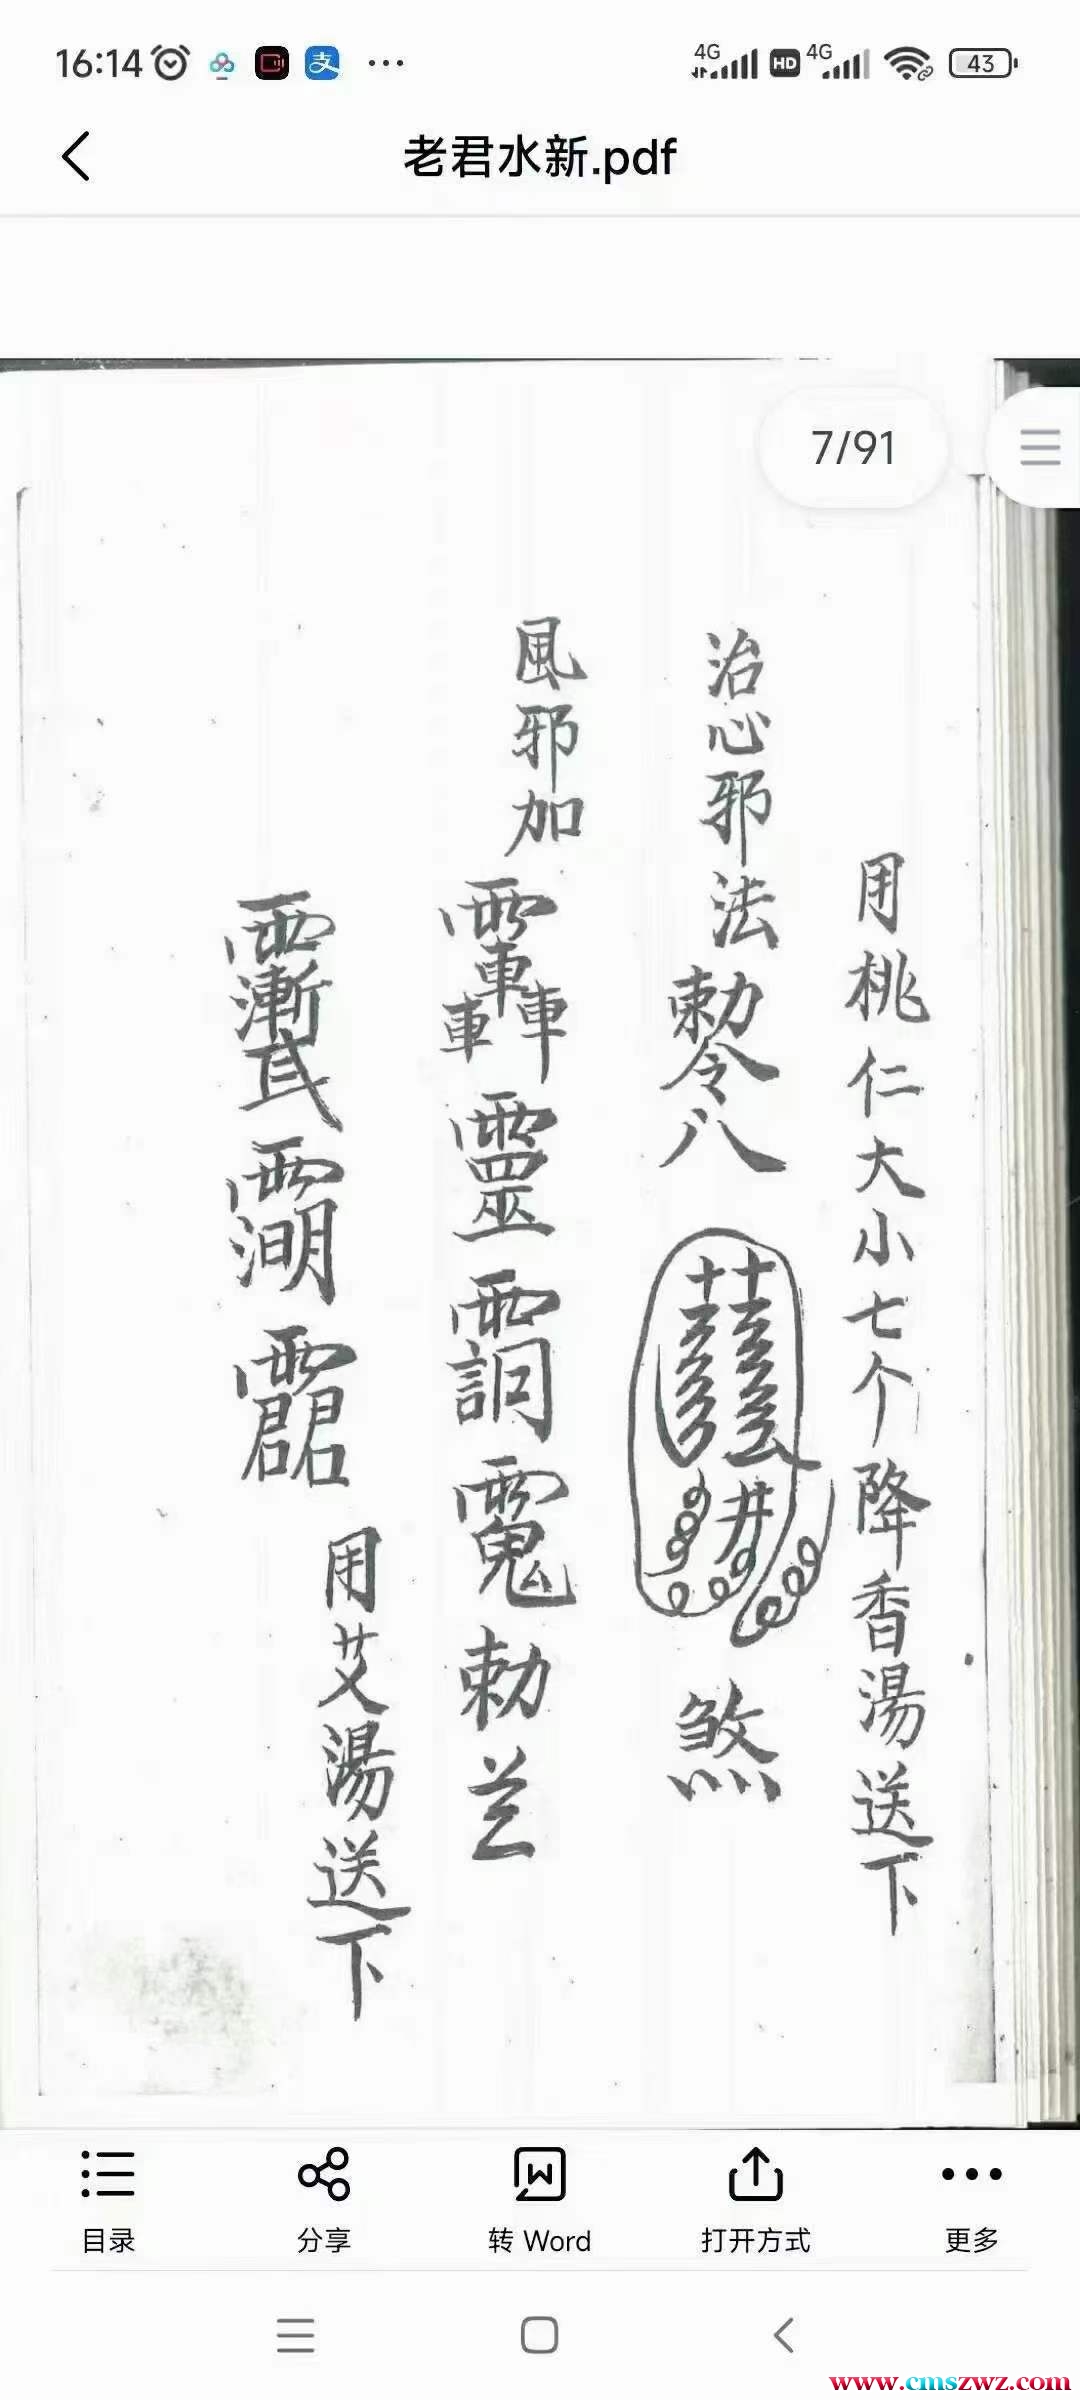 16:14
4G HD 4G 43
老君水新.pdf
7/91
用桃仁大小七个降香湯送下
治心邪法勅令八
煞
風邪加
勅
用艾湯送下
目录
分享
转 Word
打开方式
更多
www.cmszwz.com